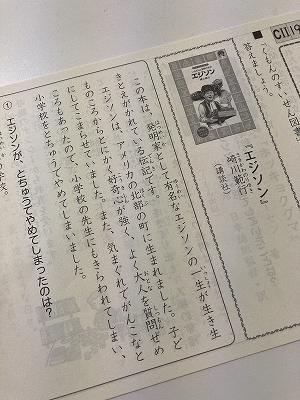 CII 19
■ くもんのすいせん図書
答えましょう。
エジソン
『エジソン』
崎川範行
(講談社)
この本は、発明家として有名なエジソンの一生が生き生
きとえがかれている伝記です。
エジソンは、アメリカの北部の町に生まれました。子ど
ものころからとにかく好奇心が強く、よく大人を質問ぜめ
にしてこまらせていました。また、気まぐれでがんこなと
ころもあったので、小学校の先生にもきらわれてしまい、
小学校をとちゅうでやめてしまいました。
① エジソンが、とちゅうでやめてしまったのは?
学校。